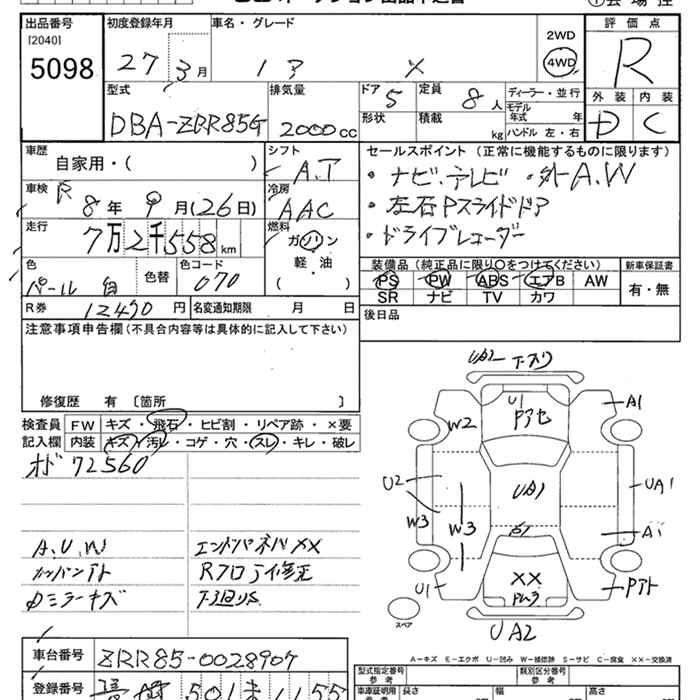 出品番号 初度登録年月 車名・グレード 2WD 評価点
[2040] 4WD R
5098 27 3月 ノア X
外装 内装
型式 排気量 ドア 5 定員 8人 ディーラー・並行
モデル年式 年
DBA-ZRR85G 2000cc 形状 積載 kg ハンドル 左・右 D C
車歴 自家用・( ) シフト A.T セールスポイント (正常に機能するものに限ります)
車検 R 8年 9月(26日) 冷房 AAC ・ナビ、テレビ ・外A.W
・左右Pスライドドア
走行 7万2千558km 燃料 ガソリン 軽・油 ( ) ・ドライブレコーダー
色 パール白 色替 色コード 070 装備品 (純正品に限り○をつけてください) 新車保証書
PS PW ABS エアB AW 有・無
SR ナビ TV カワ
R券 12490円 名変通知期限 月 日 後日品
注意事項申告欄(不具合内容等は具体的に記入して下さい)
修復歴 有 〔箇所 〕
検査員 FW キズ・飛石・ヒビ割・リペア跡・×要
記入欄 内装 キズ・汚レ・コゲ・穴・スレ・キレ・破レ
72560
A.U.W エンドパネルXX
Rフロア修正
U1
W2 A1
UA1
U2 UA1
W3 W3 A1
U1 XX
スペア UA2
A−キズ E−エクボ U−凹み W−補修跡 S−サビ C−腐食 XX−交換済
車台番号 ZRR85-0028907
型式指定番号 類別区分番号
登録番号 501 1155
車庫証明用 長さ 幅 高さ
参考